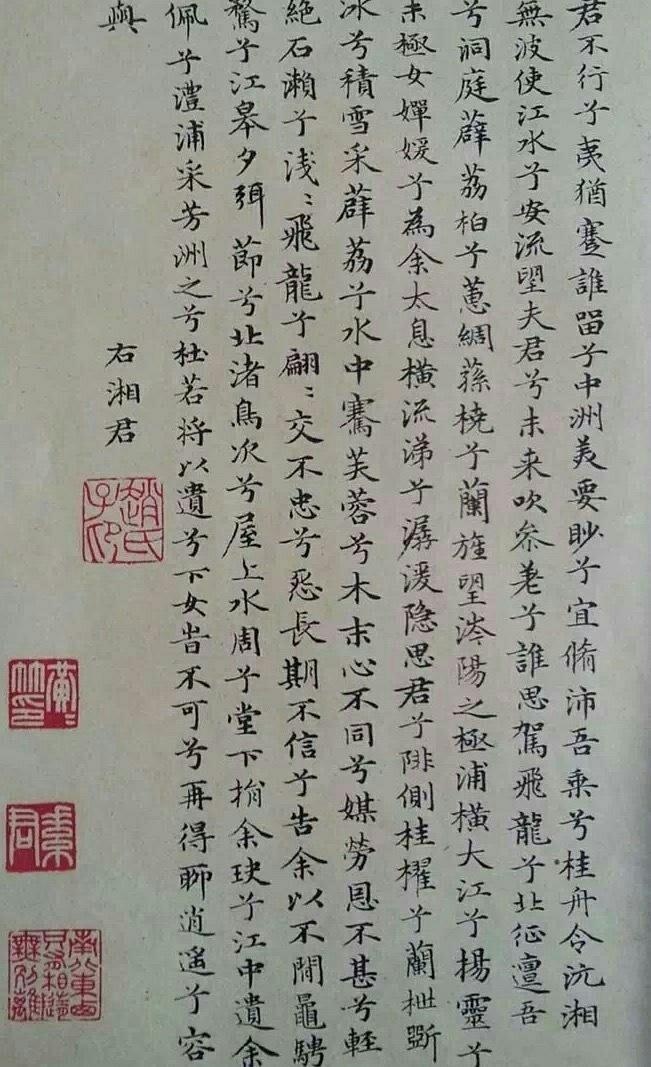 君不行兮夷猶蹇誰畱兮中洲美要眇兮宜脩沛吾乗兮桂舟令沅湘
無波使江水兮安流望夫君兮未来吹参差兮誰思駕飛龍兮北征邅吾
兮洞庭薜荔柏兮蕙綢蓀橈兮蘭旌望涔陽之極浦横大江兮揚靈兮
未極女嬋媛兮為余太息横流涕兮潺湲隐思君兮陫側桂櫂兮蘭枻斲
冰兮積雪采薜荔兮水中搴芙蓉兮木末心不同兮媒勞恩不甚兮輕
絶石瀨兮浅〻飛龍兮翩〻交不忠兮怨長期不信兮告余以不閒鼂騁
騖兮江皋夕弭節兮北渚鳥次兮屋上水周兮堂下捐余玦兮江中遺余
佩兮澧浦采芳洲之兮杜若将以遺兮下女旹不可兮再得聊逍遥兮容
與
右湘君
趙氏子印
南北東西只有相随無别離